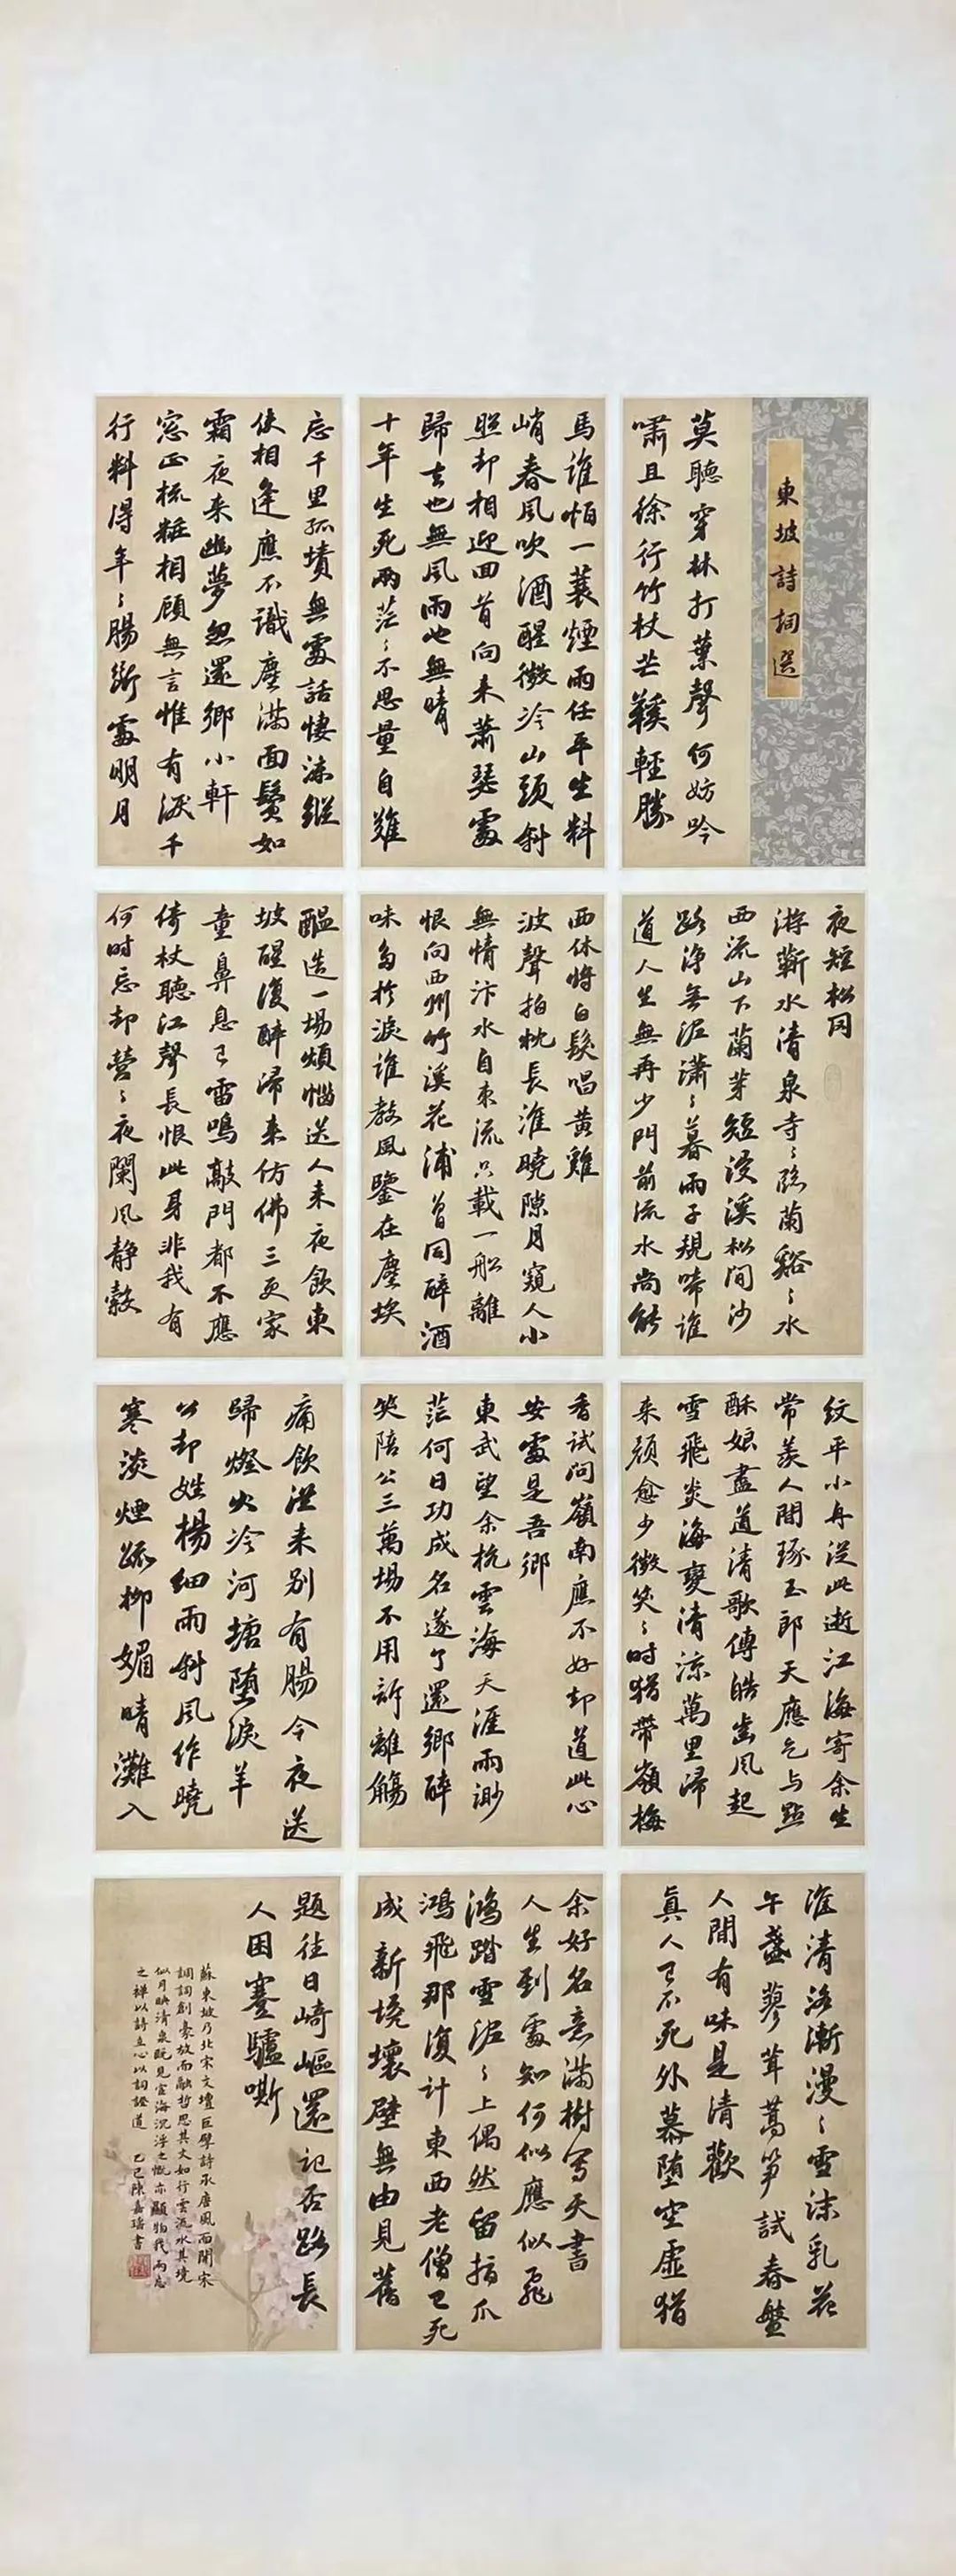 東坡詩詞選
莫聽穿林打葉聲何妨吟
嘯且徐行竹杖芒鞵輕勝
馬誰怕一蓑煙雨任平生料
峭春風吹酒醒微冷山頭斜
照却相迎回首向来蕭瑟處
歸去也無風雨也無晴
十年生死兩茫〻不思量自難
忘千里孤墳無處話悽涼縱
使相逢應不識塵滿面鬢如
霜夜来幽夢忽還鄉小軒
窓正梳粧相顧無言惟有淚千
行料得年〻腸斷處明月
夜短松岡
游蘄水清泉寺〻臨蘭谿〻水
西流山下蘭芽短浸溪松間沙
路淨無泥瀟〻暮雨子規啼誰
道人生無再少門前流水尚能
西休將白髮唱黃雞
波聲拍枕長淮曉隙月窺人小
無情汴水自東流只載一船離
恨向西州竹溪花浦曾同醉酒
味多於淚誰教風鑒在塵埃
醖造一場煩惱送人来夜飲東
坡醒復醉歸来仿佛三更家
童鼻息已雷鳴敲門都不應
倚杖聽江聲長恨此身非我有
何時忘却營〻夜闌風靜縠
紋平小舟從此逝江海寄余生
常羨人間琢玉郎天應乞与點
酥娘盡道清歌傳皓齒風起
雪飛炎海變清涼萬里歸
来顏愈少微笑〻時猶帶嶺梅
香試問嶺南應不好却道此心
安處是吾鄉
東武望余杭雲海天涯兩渺
茫何日功成名遂了還鄉醉
笑陪公三萬場不用訴離觴
痛飲従来别有腸今夜送
歸燈火冷河塘墮淚羊
公却姓楊細雨斜風作曉
寒淡煙疏柳媚晴灘入
淮清洛漸漫〻雪沫乳花
午盞蓼茸蒿笋試春盤
人間有味是清歡
真人已不死外慕堕空虛猶
余好名意滿樹寫天書
人生到處知何似應似飛
鴻踏雪泥〻上偶然留指爪
鴻飛那復計東西老僧已死
成新墖壞壁無由見舊
題往日崎嶇還記否路長
人困蹇驢嘶
蘇東坡乃北宋文壇巨擘詩承唐風而開宋
調詞創豪放而融哲思其文如行雲流水其境
似月映清泉既見宦海沉浮之慨亦顯物我兩忘
之禅以詩立心以詞證道 乙巳陳嘉璠書